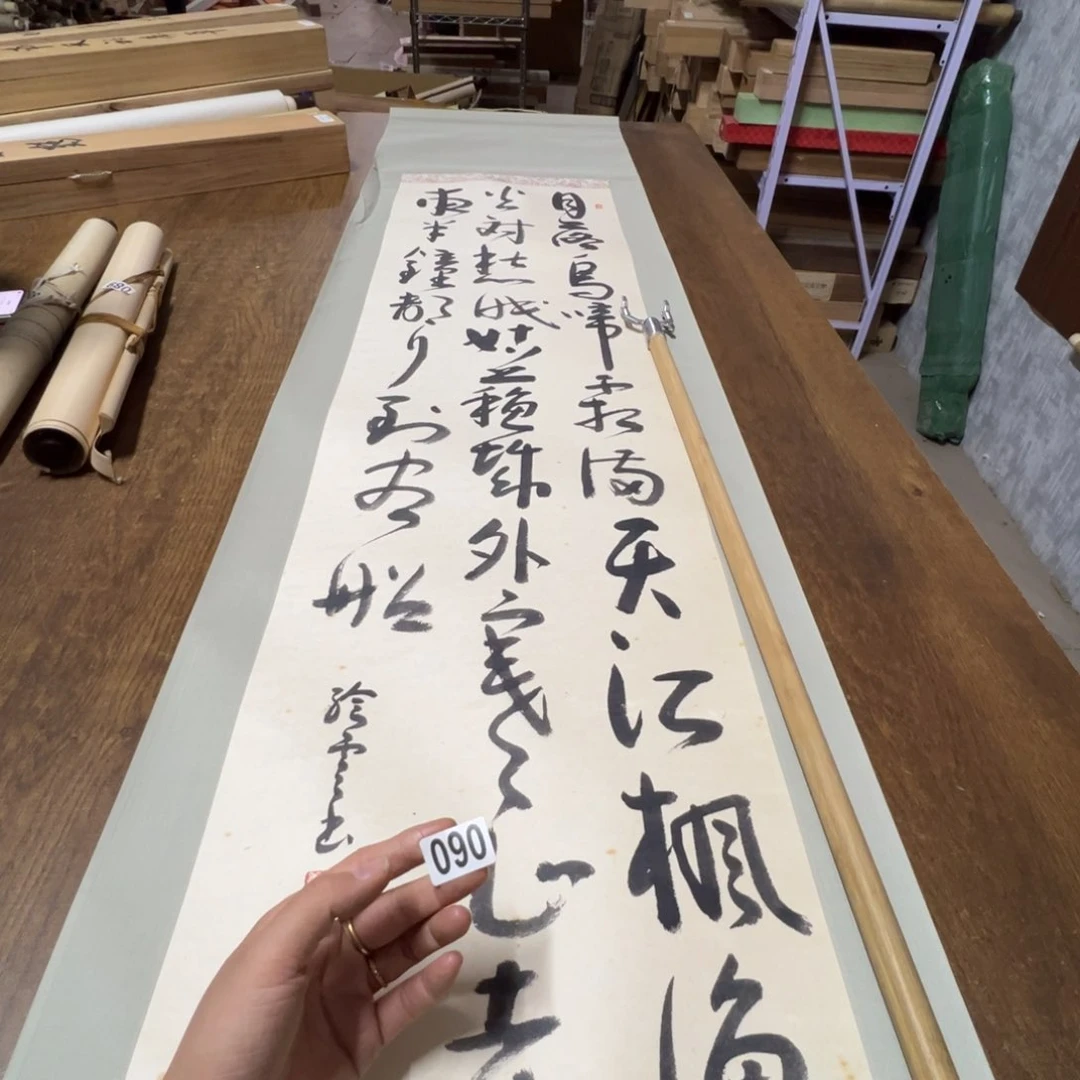 月落烏啼霜滿天江楓漁
火對愁眠姑蘇城外寒山寺
夜半鐘聲到客船
090